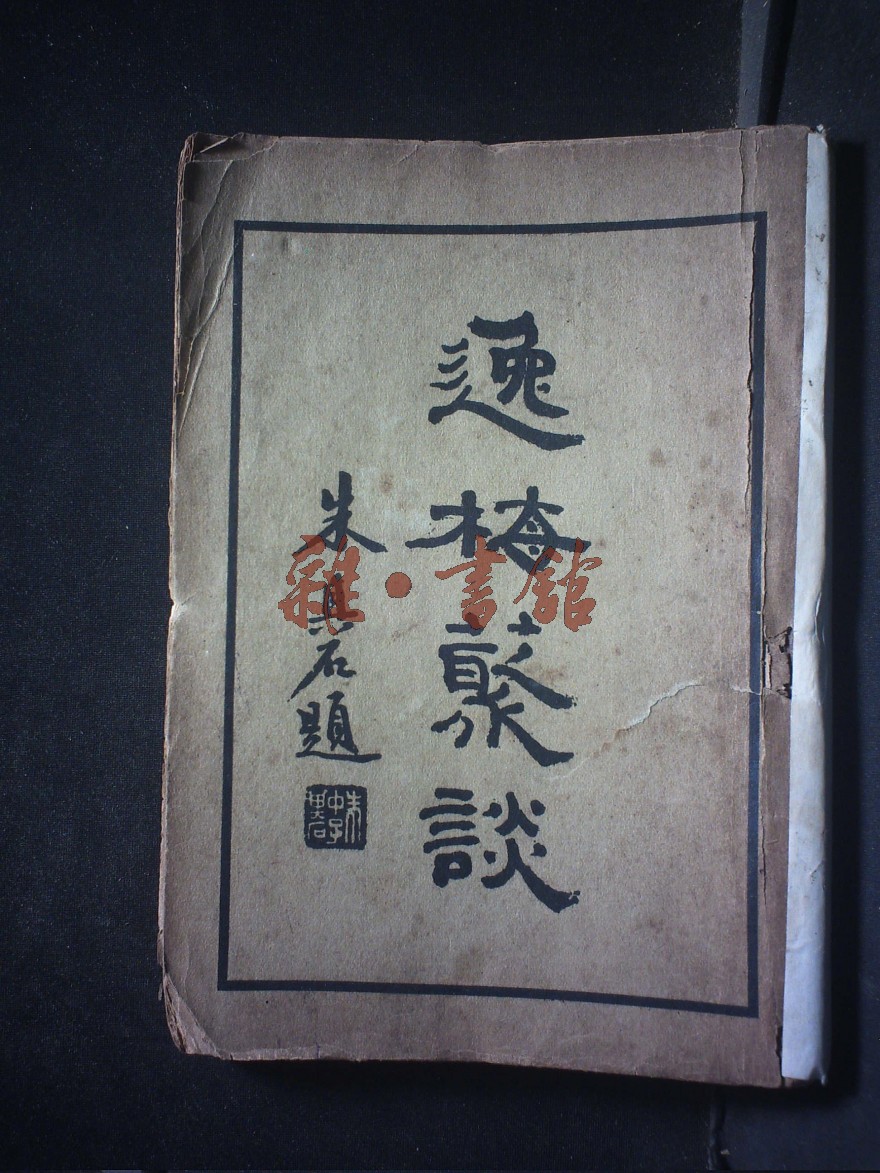 逸梅藂談
朱其石題
雜·書館